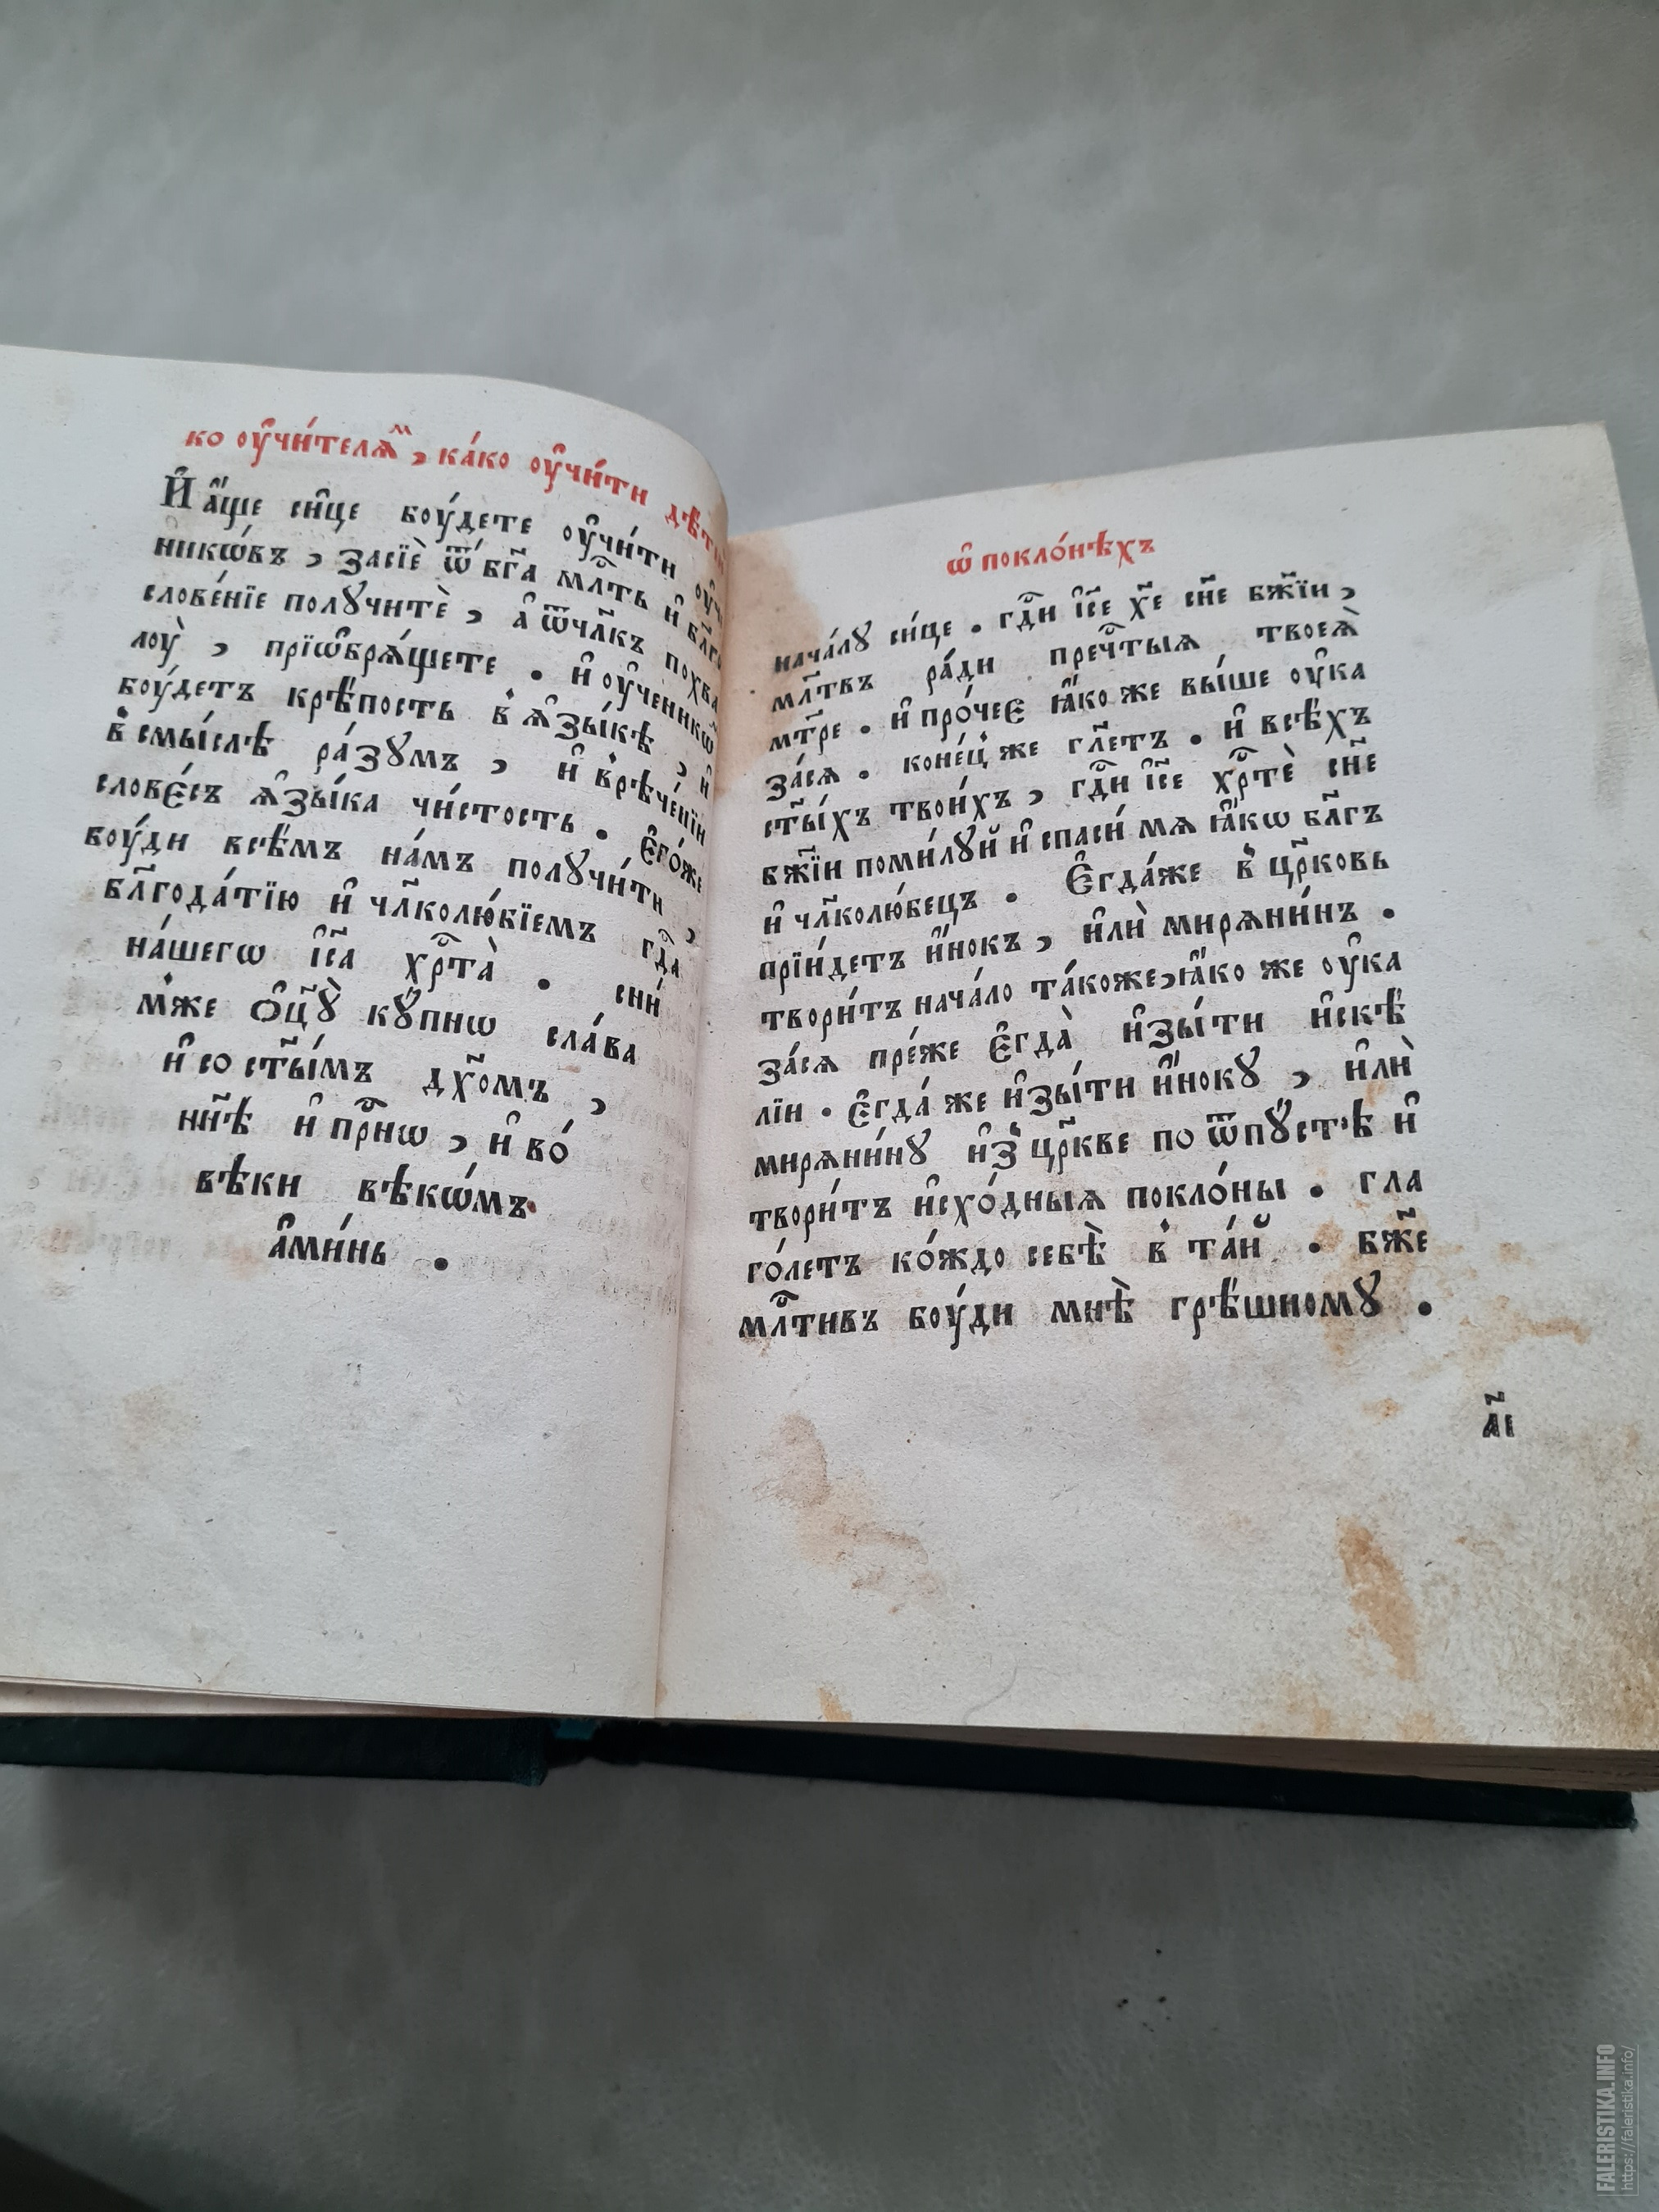 ко оу҆чи́телѧⷨ, ка́ко оу҆чи́ти дѣ́ти
И҆ а҆́ще си́це боу́дете оу҆чи́ти оу҆че
никѡ́въ, засїѐ ѿ́ бг҃а млⷭ҇ть и҆ бл҃го
слове́нїе полꙋчитѐ, а҆ ѿчл҃къ похва
лоу̀, прїѡ҆брѧ́щете . и҆ оу҆ченикѡ҆
боу́детъ крѣ́пость в̾ ѧ҆зы́кѣ, и҆
в̾смы́слѣ ра́зꙋмъ, и҆ в̾рѣче́нїи
слове́съ ѧ҆зы́ка чи́стость . є҆го́же
боу́ди всѣ́мъ на́мъ полꙋчи́ти,
бл҃года́тїю и҆ чл҃колю́бїемъ гдⷭ҇а
на́шегѡ і҆с҃а хрⷭ҇та̀ . сни́
м̾же ѻ҆ц҃ꙋ̀ кꙋ́пнѡ сла́ва
и҆ со ст҃ы́мъ дх҃омъ,
нн҃ѣ и҆ прⷭ҇нѡ, и҆ во́
вѣки вѣкѡ́мъ
а҆ми́нь .
ѡ҆ покло́нѣхъ
нача́лꙋ си́це . гдⷭ҇и і҆с҃е хⷭ҇е сн҃е бж҃їи,
мл҃твъ ра́ди пречⷭ҇тыѧ твоеѧ̀
мт҃ре . и҆ про́чеє ꙗ҆́ко же вы́ше оу҆ка
за́сѧ . коне́ц̾ же гл҃етъ . и҆ всѣ́хъ
ст҃ы́хъ твои́хъ, гдⷭ҇и і҆с҃е хрⷭ҇тѐ сн҃е
бж҃їи поми́лꙋй и҆ спаси́ мѧ ꙗ҆́кѡ бл҃гъ
и҆ чл҃колю́бецъ . Є҆гда́же в̾ цр҃ковь
прїи́детъ и҆́нокъ, и҆лѝ мирѧни́нъ .
твори́тъ нача́ло та́коже, ꙗ҆́ко же оу҆ка
за́сѧ пре́же є҆гда̀ и҆зы́ти и҆скѣ́
лїи . є҆гда́ же и҆зы́ти и҆́нокꙋ, и҆лѝ
мирѧни́нꙋ и҆з̾ цр҃кве по ѿпꙋ́стѣ и҆
твори́тъ и҆схо́дныѧ покло́ны . гла
го́летъ ко́ждо себѣ̀ в̾ та́й . бж҃е
млⷭ҇тивъ боу́ди мнѣ̀ грѣ́шномꙋ .
а҃і
FALERISTIKA.INFO
https://faleristika.info/